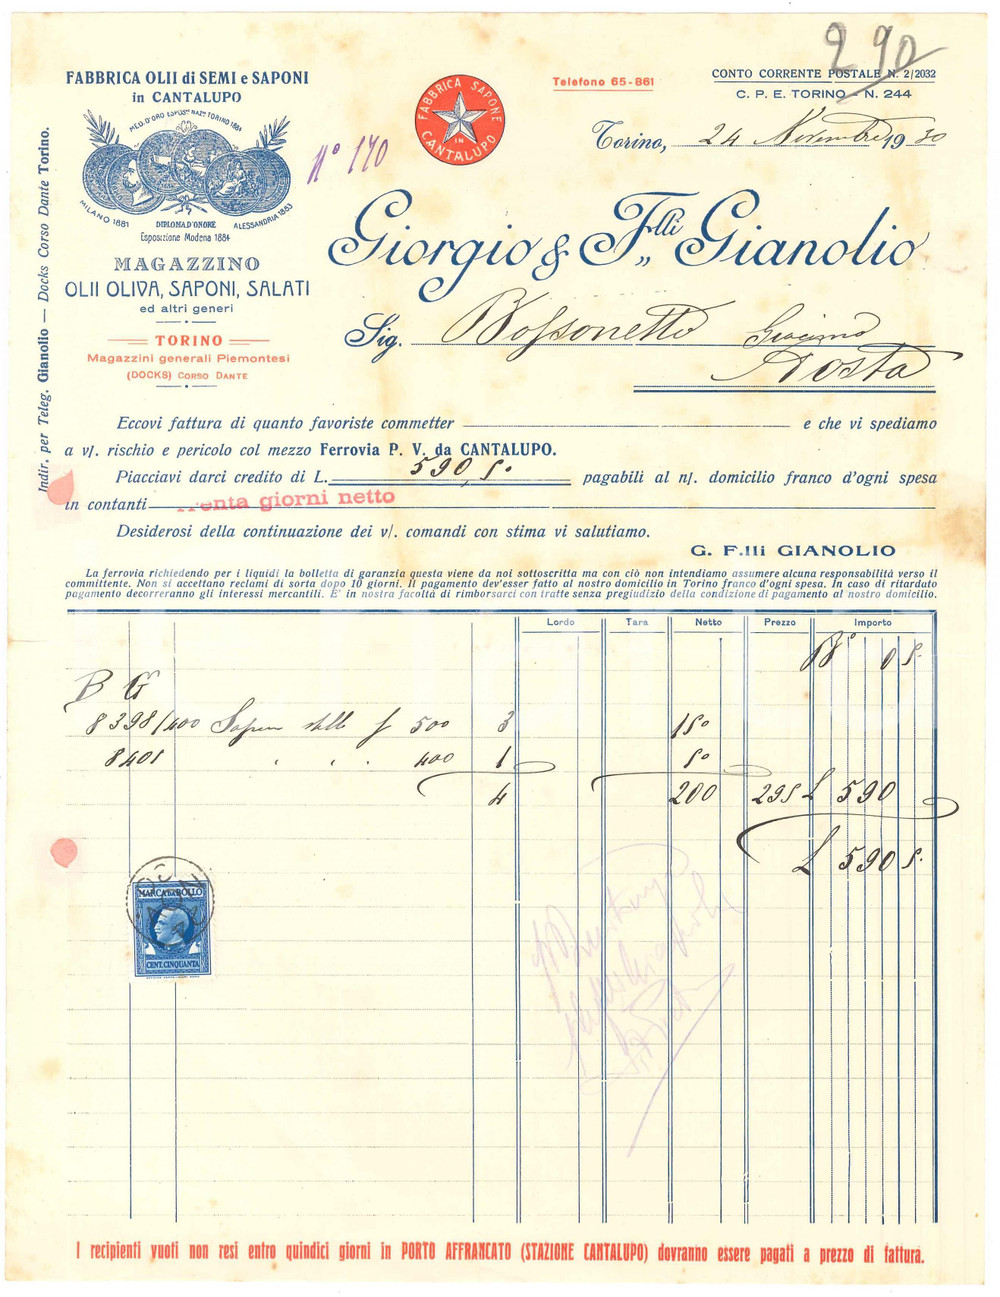 290
FABBRICA OLII di SEMI e SAPONI
in CANTALUPO
MED. D'ORO ESPOS.NE NAZ.LE TORINO 1884
MILANO 1881
DIPLOMA D'ONORE
ALESSANDRIA 1883
Esposizione Modena 1884
N° 170
FABBRICA SAPONE
IN
CANTALUPO
Telefono 65-861
CONTO CORRENTE POSTALE N. 2/2032
C. P. E. TORINO - N. 244
Torino, 24 Novembre 1930
Indir. per Teleg. Gianolio — Docks Corso Dante Torino.
MAGAZZINO
OLII OLIVA, SAPONI, SALATI
ed altri generi
TORINO
Magazzini generali Piemontesi
(DOCKS) CORSO DANTE
Giorgio & F.lli Gianolio
Sig. Bossonetto Giacomo
Aosta
Eccovi fattura di quanto favoriste commetter e che vi spediamo
a v/. rischio e pericolo col mezzo Ferrovia P. V. da CANTALUPO.
Piacciavi darci credito di L. 590,50 pagabili al n/. domicilio franco d'ogni spesa
in contanti Trenta giorni netto
Desiderosi della continuazione dei v/. comandi con stima vi salutiamo.
G. F.lli GIANOLIO
La ferrovia richiedendo per i liquidi la bolletta di garanzia questa viene da noi sottoscritta ma con ciò non intendiamo assumere alcuna responsabilità verso il
committente. Non si accettano reclami di sorta dopo 10 giorni. Il pagamento dev'esser fatto al nostro domicilio in Torino franco d'ogni spesa. In caso di ritardato
pagamento decorreranno gli interessi mercantili. E' in nostra facoltà di rimborsarci con tratte senza pregiudizio della condizione di pagamento al nostro domicilio.
Lordo Tara Netto Prezzo Importo
B° 05.
B G
8398/400 Sapon 500 3 150
8401 " " " 400 1 50
4 200 295 L 590
L 590 5.
MARCA DA BOLLO
CENT. CINQUANTA
I recipienti vuoti non resi entro quindici giorni in PORTO AFFRANCATO (STAZIONE CANTALUPO) dovranno essere pagati a prezzo di fattura.